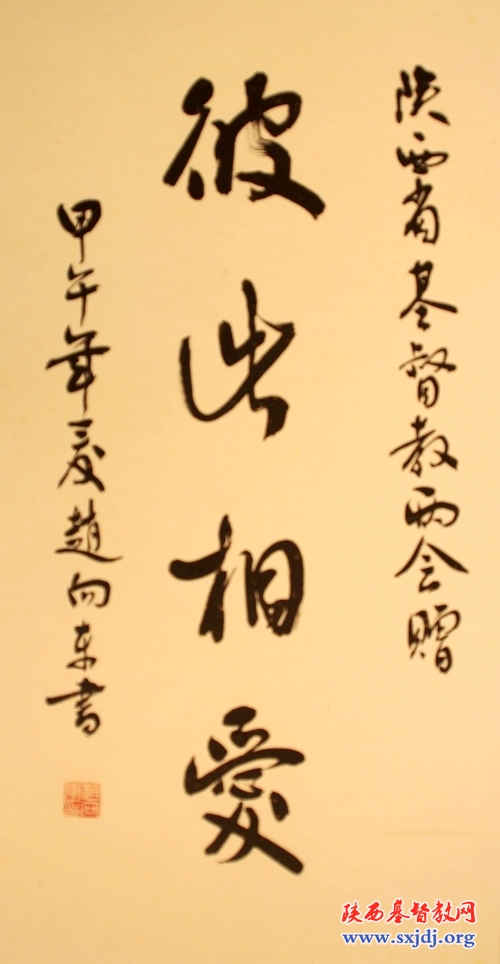 陕西省基督教两会赠
彼此相愛
甲午年夏趙向东書
陕西基督教网
www.sxjdj.org